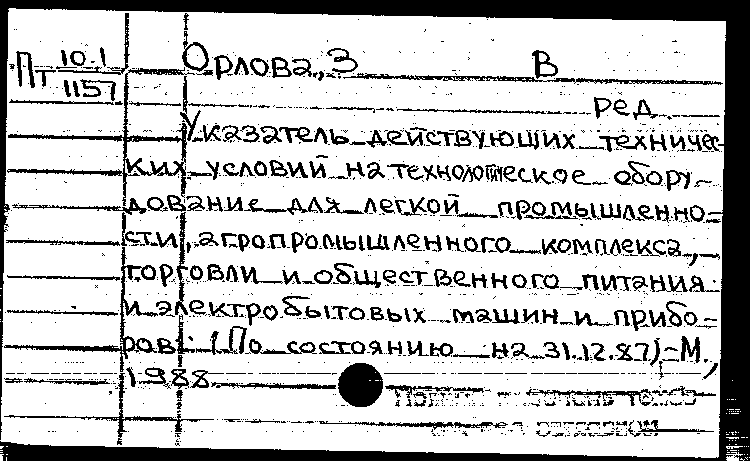 Пт 10.1 Орлова, З В
1157
ред
Указатель действующих техничес-
ких условий на технологическое обору-
дование для легкой промышленно-
сти, агропромышленного комплекса,
торговли и общественного питания
и электробытовых машин и прибо-
ров: (По состоянию на 31.12.87)-М.,
1988.